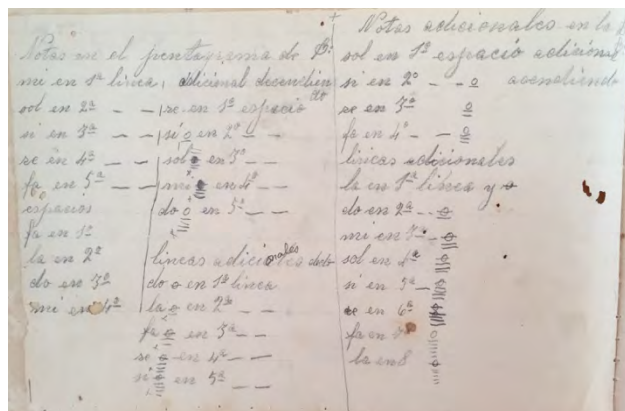 Notas en el pentagrama de
mi en 1ª linea,
sol en 2ª — —
si en 3ª — —
re en 4ª — —
fa en 5ª — —
espacios
fa en 1º
la en 2º
do en 3º
mi en 4º
adicional decendien
do
re en 1º espacio
si o en 2º — —
sol o en 3º — —
mi o en 4º — —
do o en 5º — —
lineas adicionales
do o en 1ª linea
la o en 2ª — —
fa o en 3ª — —
re o en 4ª — —
si o en 5ª — —
Notas adicionales en la
sol en 1º espacio adicional
si en 2º — — o acendiendo
re en 3º o
fa en 4º — — o
lineas adicionales
la en 1ª linea y o
do en 2ª — — o
mi en 3ª — o
sol en 4ª
si en 5ª
re en 6ª
fa en 7ª
la en 8